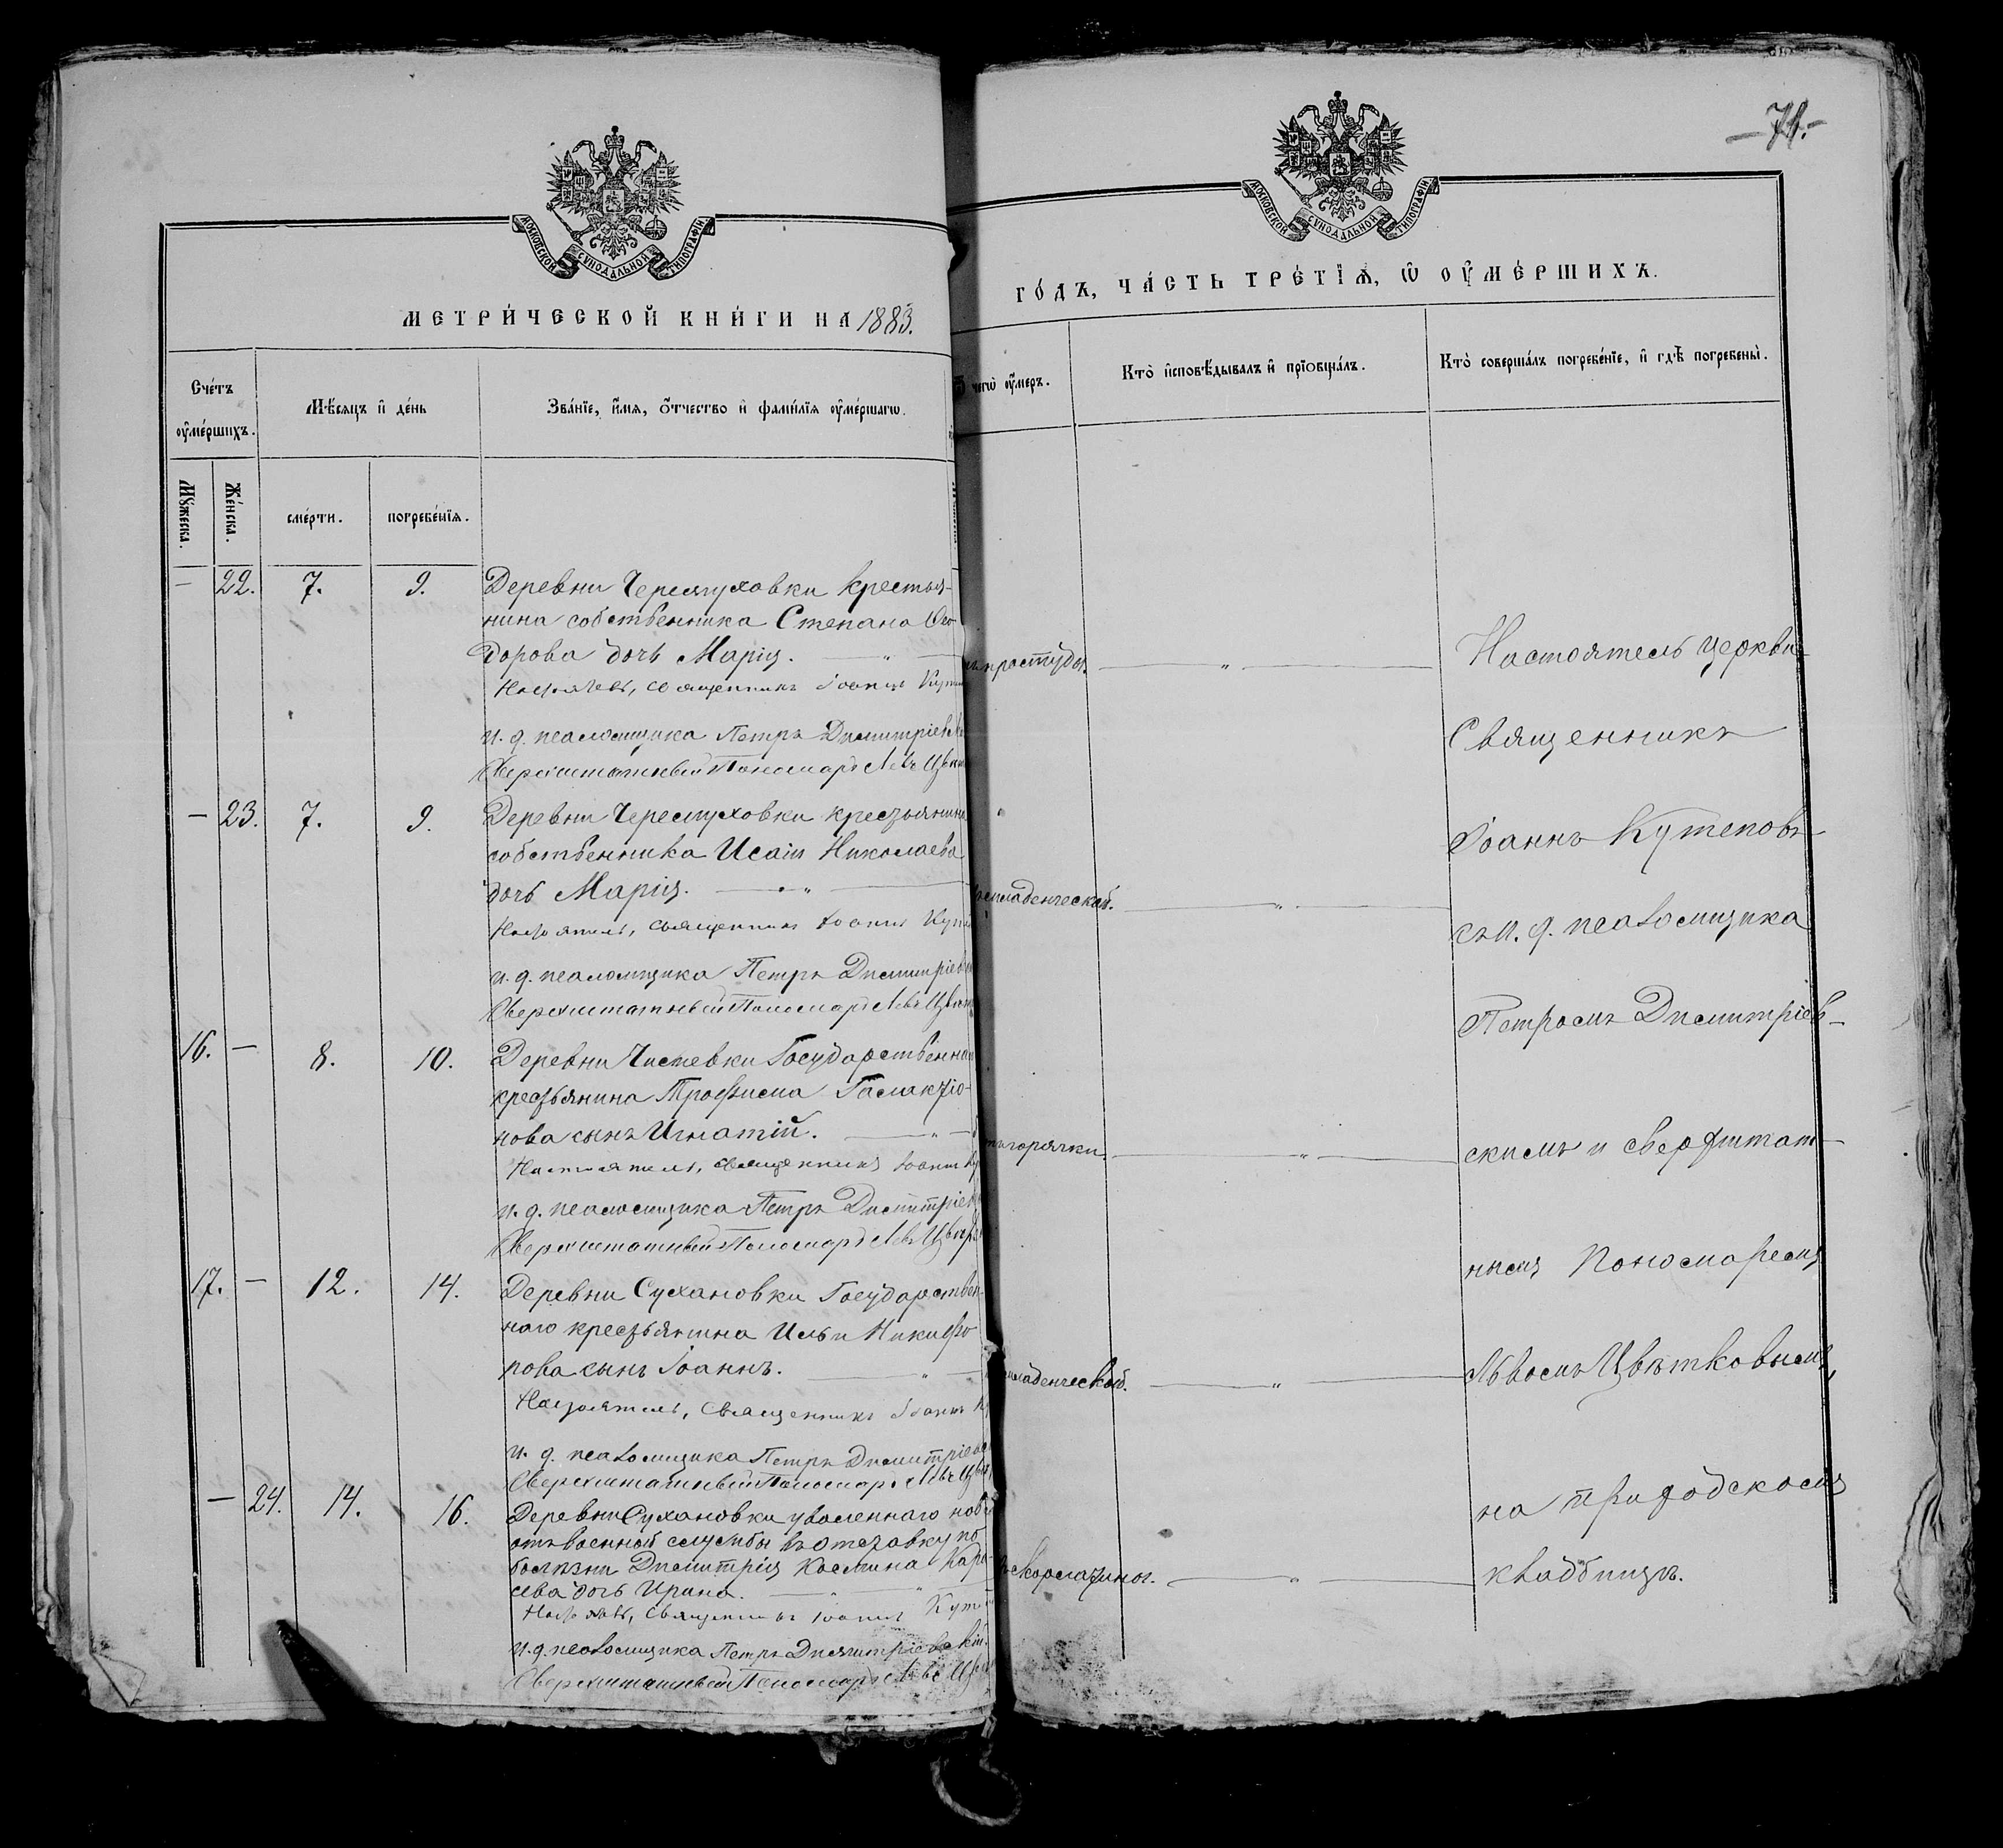 МОСКОВСКОЙ СѴНОДАЛЬНОЙ ТИПОГРАФІИ
МЕТРИ́ЧЕСКОЙ КНИ́ГИ НА 1883.
Сче́тъ ѹ҆ме́ршихъ.
Мѣ́сяцъ и҆ де́нь
Зва́нїе, и҆́мя, ѻ҆́тчество и҆ фами́лїя ѹ҆ме́ршагѡ.
Мꙋжеска.
Же́нска.
сме́рти.
погребе́нїя.
— 22. 7. 9. Деревни Черемуховки крестья-
нина собственника Степана Ѳео-
дорова дочь Марія.
Настоятель, священникъ Іоаннъ
и. д. псаломщика Петръ Димитріевск
Сверхштатный Пономарь Левъ
— 23. 7. 9. Деревни Черемуховки крестьянина
собственника Исаіи Николаева
дочь Марія.
Настоятель, священникъ Іоаннъ
и. д. псаломщика Петръ Димитріев
Сверхштатный Пономарь Левъ
16. — 8. 10. Деревни Чистевки Государственна
крестьянина Трофима Галактіо-
нова сынъ Игнатій.
Настоятель, священникъ Іоаннъ
и. д. псаломщика Петръ Димитріев
Сверхштатный Пономарь Левъ
17. — 12. 14. Деревни Сухановки Государствен-
наго крестьянина Ильи Никифо
рова сынъ Іоаннъ.
Настоятель, священникъ Іоаннъ
и. д. псаломщика Петръ Димитріев
Сверхштатный Пономарь Левъ
— 24. 14. 16. Деревни Сухановки уволеннаго
отъ военной службы въ отставку по
болѣзни Димитрія Космина
сева дочь Ирина.
Настоятель, священникъ Іоаннъ
и. д. псаломщика Петръ Димитріевскій
Сверхштатный Пономарь Левъ
— 71. —
МОСКОВСКОЙ СѴНОДАЛЬНОЙ ТИПОГРАФІИ
ГО́ДЪ, ЧА́СТЬ ТРЕ́ТЇѦ, Ѡ҆ ОУ҆МЕ́РШИХЪ.
Ѿ чегѡ̀ ѹ҆́меръ.
Кто̀ и҆сповѣ́дывалъ и҆ прїѡбща́лъ.
Кто̀ соверша́лъ погребе́нїе, и҆ гдѣ̀ погребены̀.
простуды.
младенческой.
горячки.
младенческой.
скарлатины.
Настоятель церкви
Священникъ
Іоаннъ Кутеповъ
съ и. д. псаломщика
Петромъ Димитріев-
скимъ и сверхштат-
нымъ Пономаремъ
Львомъ Цвѣтковымъ,
на приходскомъ
кладбищѣ.